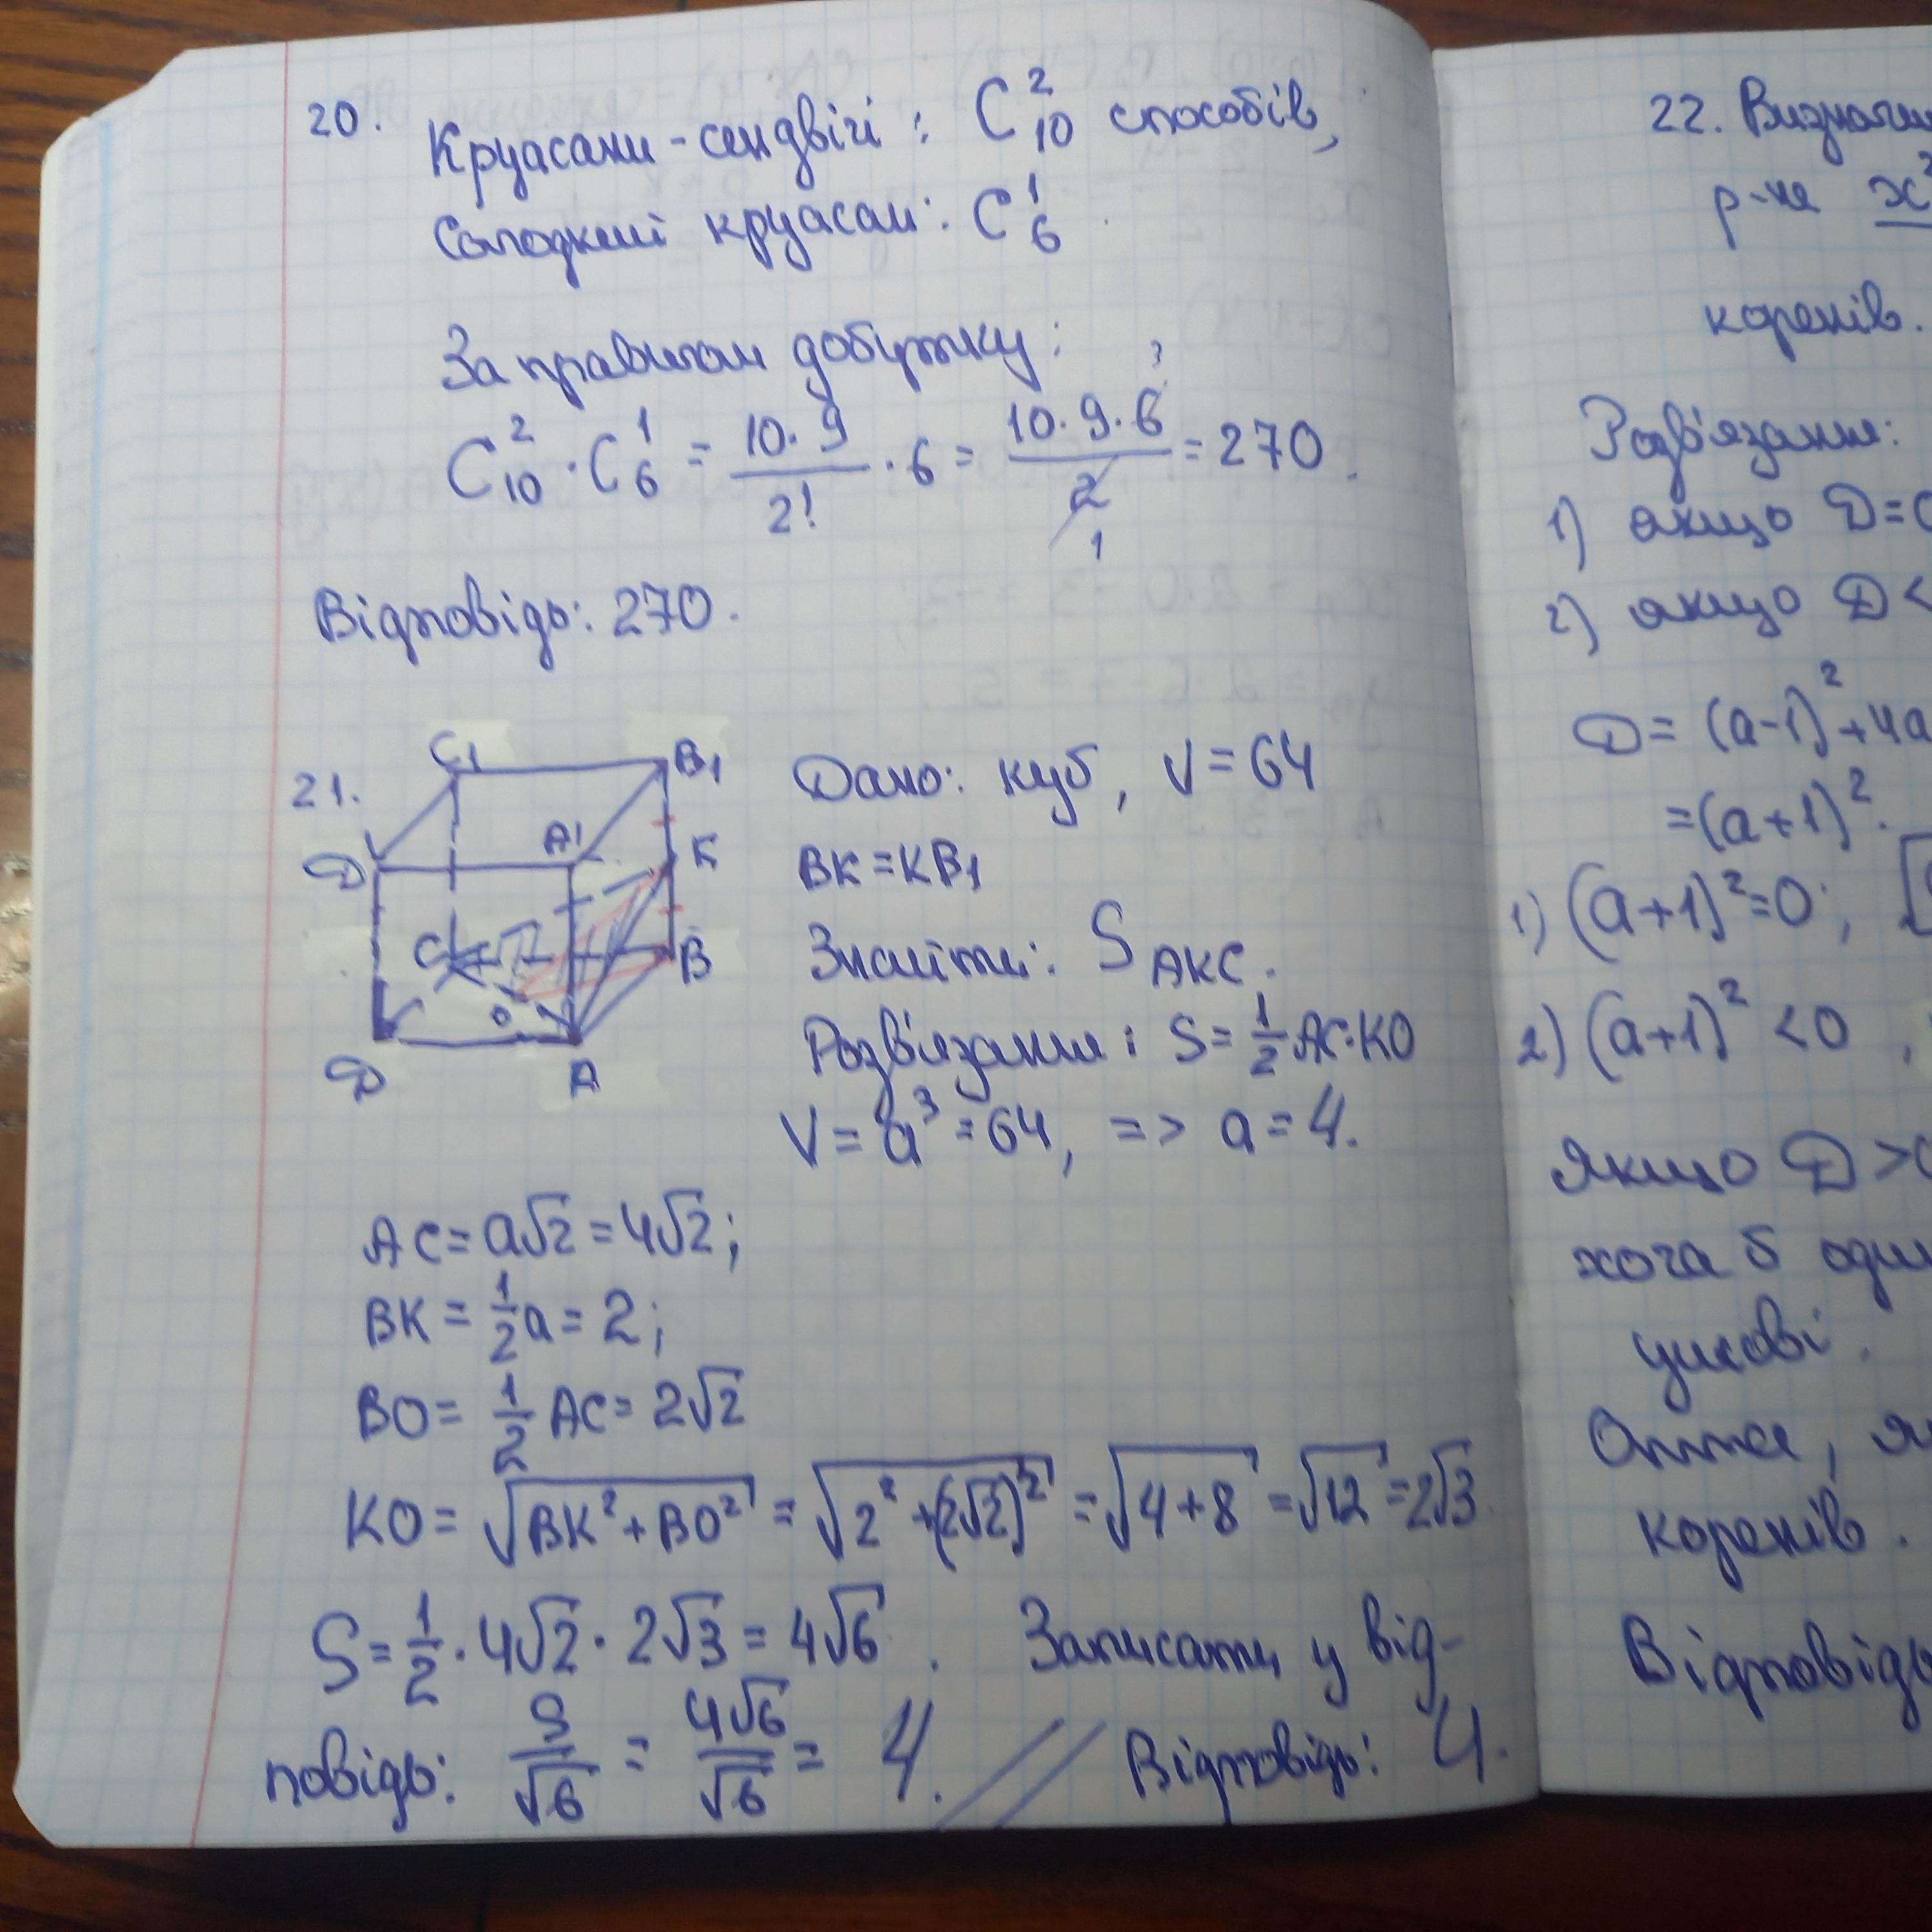 20. Круасани-сендвічі: C²₁₀ способів,
Солодкий круасан: C¹₆.
За правилом добутку:
C²₁₀ · C¹₆ = 10·9/2! · 6 = 10·9·6/2 = 270.
3
1
Відповідь: 270.
21.
C₁ B₁
D A₁ K
C B
O
D A
Дано: куб, V = 64
BK = KB₁
Знайти: S AKC.
Розв'язання: S = 1/2 AC·KO
V = a³ = 64, => a = 4.
AC = a√2 = 4√2;
BK = 1/2 a = 2;
BO = 1/2 AC = 2√2
KO = √(BK² + BO²) = √(2² + (2√2)²) = √(4+8) = √12 = 2√3.
S = 1/2 · 4√2 · 2√3 = 4√6. Записати у від-
повідь: S/√6 = 4√6/√6 = 4. // Відповідь: 4.
22.
р-ня x²
коренів.
Розв'язання:
1) якщо D =
2) якщо D <
D = (a-1)² + 4a
= (a+1)².
1) (a+1)² = 0;
2) (a+1)² < 0,
якщо D >
хоча б
умові.
Отже,
коренів.
Відповідь